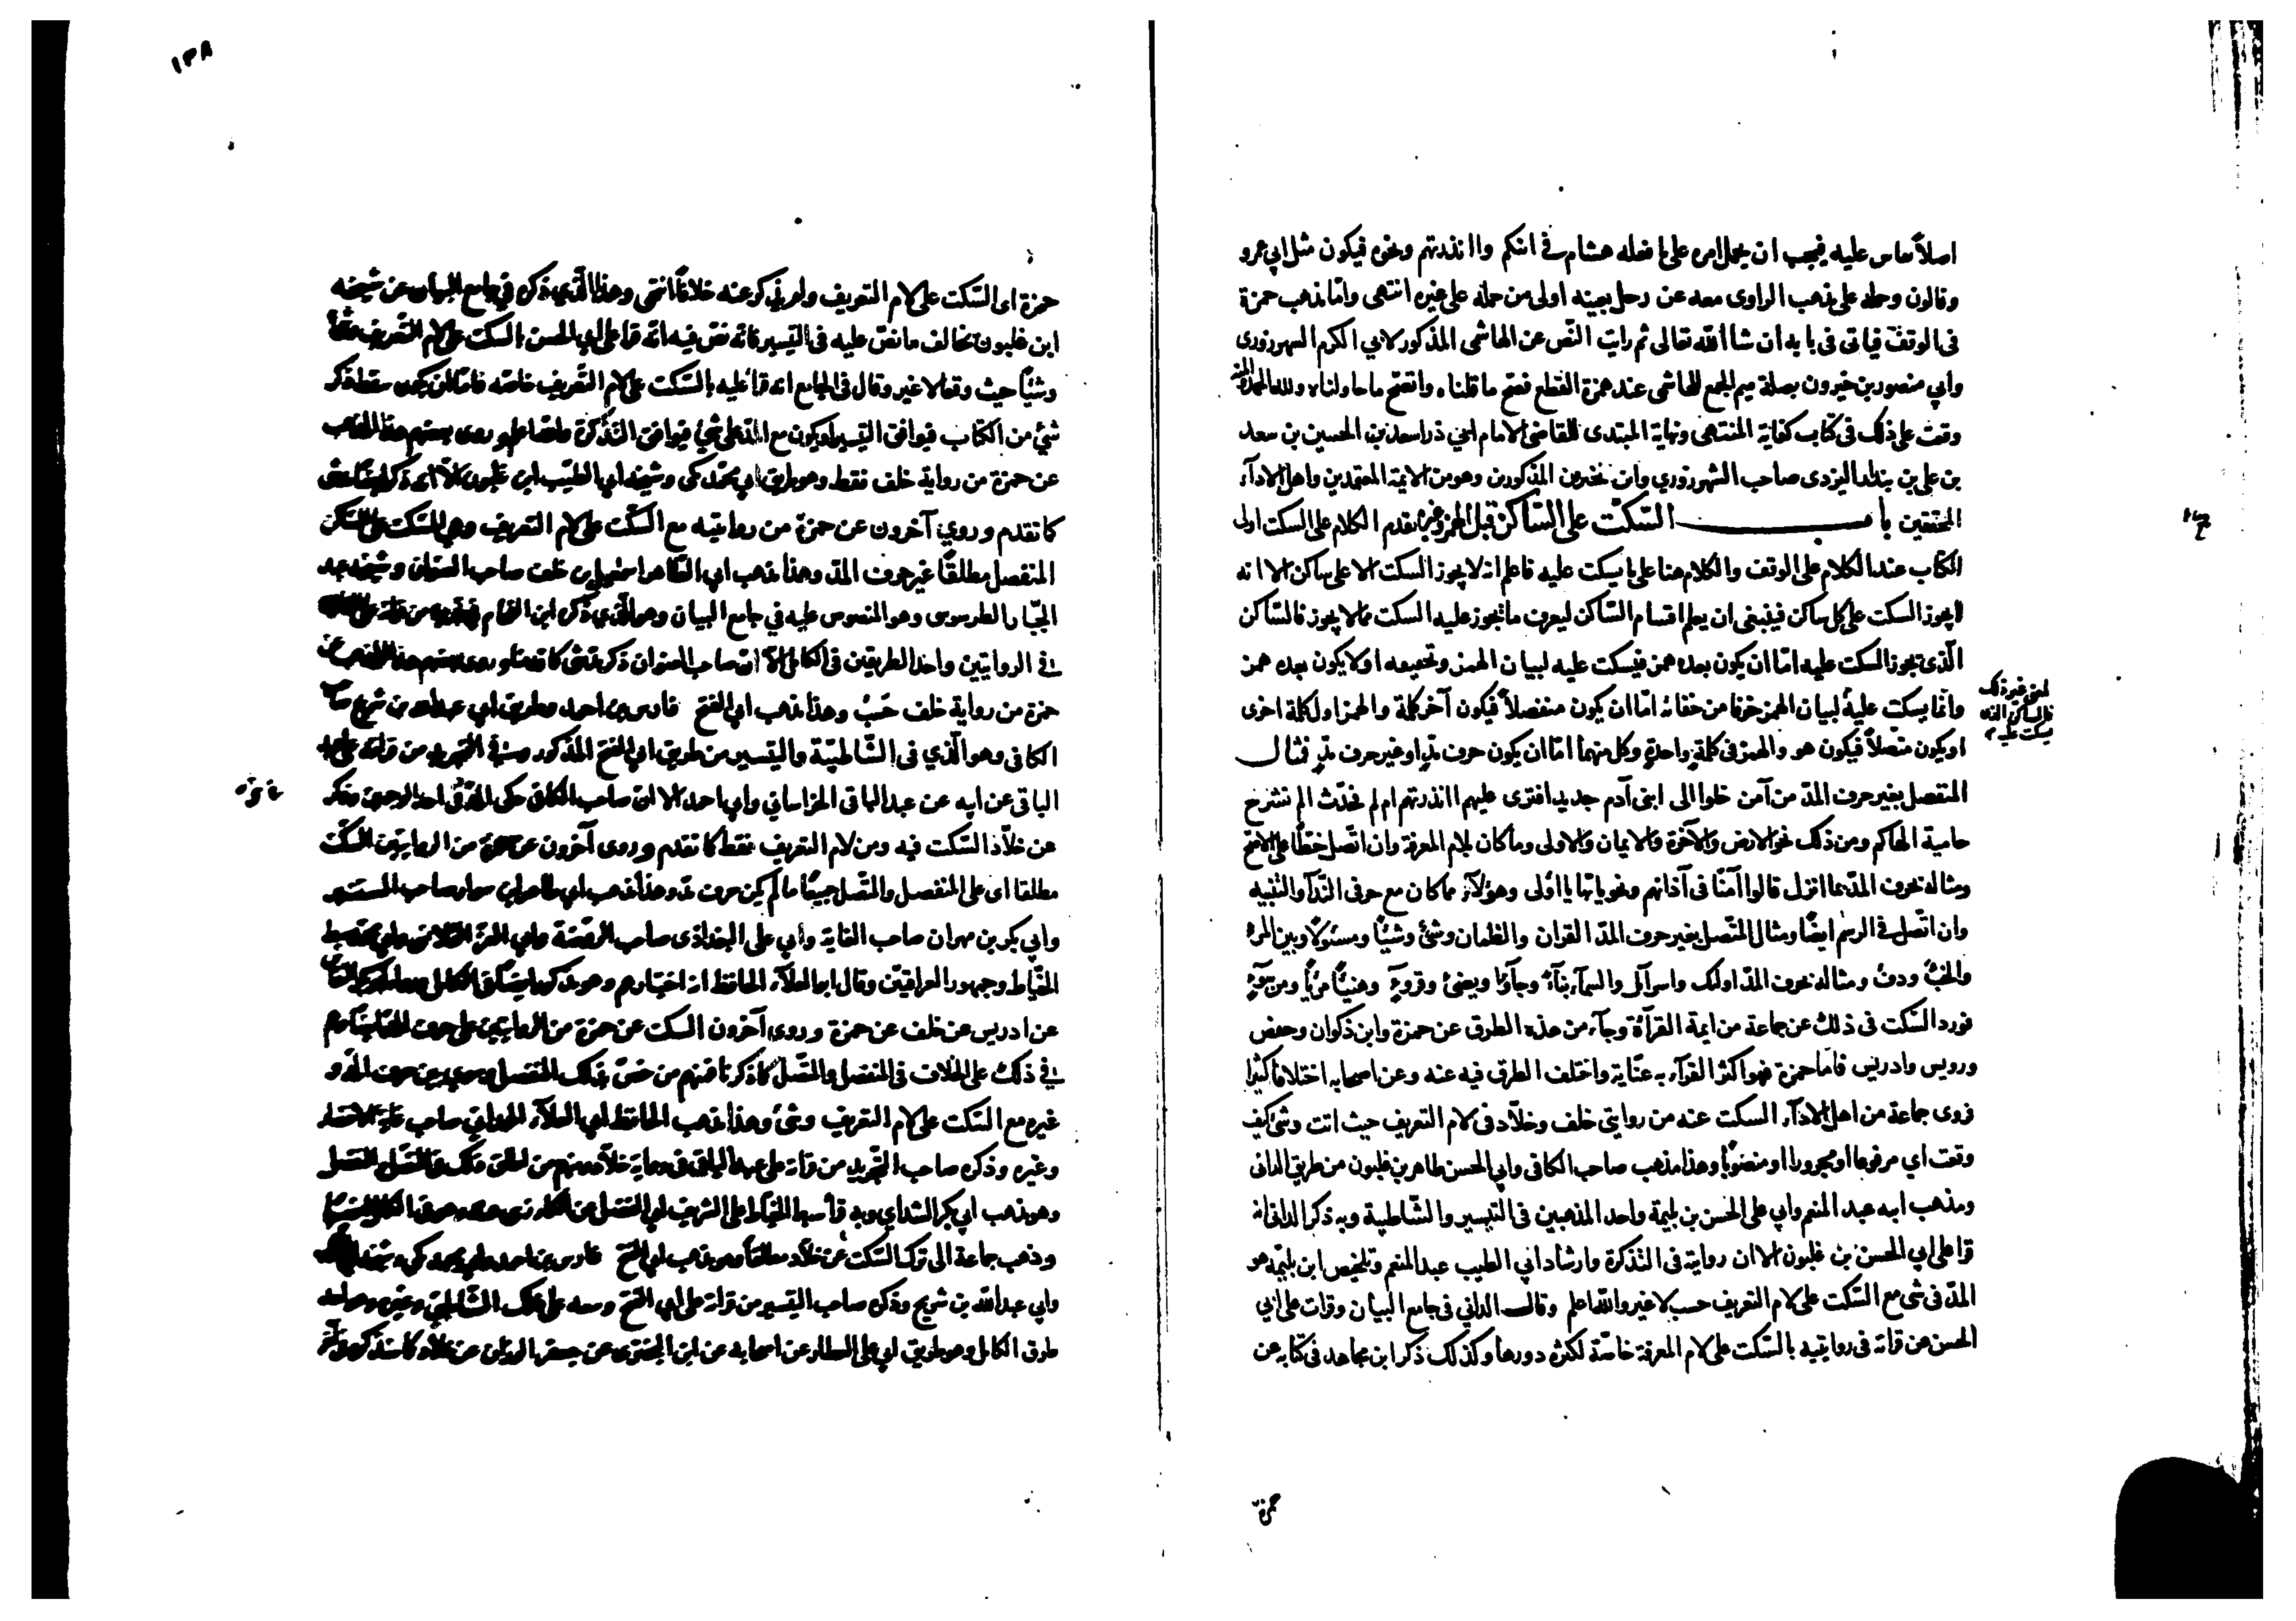 اصلاً يقاس عليه فيجب ان يحمل امره على ما فعله هشام في ائنكم وااانذرتهم ونحوه فيكون مثل ابي عمرو
وقالون وحمله على مذهب الراوى معه عن رجل بعينه اولى من حمله على غيره انتهى واما مذهب حمزة
فى الوقف فياتى فى بابه ان شا الله تعالى ثم رايت النص عن الهاشمى المذكور لابي الكرم الشهرزورى
وابي منصور بن خيرون بصلة ميم الجمع للهاشمى عند همزة القطع فصح ما قلناه واتضح ما حاولناه ولله الحمد والمنة
وقفت على ذلك فى كتاب كفاية المنتهى ونهاية المبتدى للقاضى الامام ابي ذر اسعد بن الحسين بن سعد
بن على بن بندار اليزدى صاحب الشهرزوري وابن خيرون المذكورين وهو من الايمة المعتمدين واهل الادآء
المحققين باب السكت على الساكن قبل الهمز وغيره تقدم الكلام على السكت اول
الكتاب عند الكلام على الوقف والكلام هنا على ما يسكت عليه فاعلم انه لا يجوز السكت الا على ساكن الا انه
لا يجوز السكت على كل ساكن فينبغى ان يعلم اقسام الساكن ليعرف ما يجوز عليه السكت مما لا يجوز فالساكن
الذى يجوز السكت عليه اما ان يكون بعده همز فيسكت عليه لبيان الهمز وتحقيقه او لا يكون بعده همز
وانما يسكت عليه لبيان الهمز خوفا من خفائه اما ان يكون منفصلاً فيكون آخر كلمة والهمز اول كلمة اخرى
او يكون متصلاً فيكون هو والهمز فى كلمة واحدة وكل منهما اما ان يكون حرف مد او غير حرف مد فمثال
المنفصل بغير حرف المد من آمن خلوا الى ابنى آدم جديد افترى عليهم ااانذرتهم ام لم فحدث الم نشرح
حامية الهاكم ومن ذلك نحو الارض والآخرة والايمان والاولى وما كان بلام المعرفة وان اتصل خطاً على الاصح
ومثاله بحرف المد بما انزل قالوا آمنا فى آذانهم ونحو يا ايها يا اولى وهؤلآء مما كان مع حرفى الندآ والتنبيه
وان اتصل في الرسم ايضاً ومثال المتصل بغير حرف المد القران والظمان وشئ وشيئاً ومسئولا وبين المرء
والخبء ودفء ومثاله بحرف المد اولئك واسرآئل والسمآء بنآء وجآؤا ويضئ وقروء وهنيئاً مريئاً ومن سوء
فورد السكت فى ذلك عن جماعة من ايمة القرآءة وجآء من هذه الطرق عن حمزة وابن ذكوان وحفص
ورويس وادريس فاما حمزة فهو اكثر القرآء به عناية واختلف الطرق فيه عنه وعن اصحابه اختلافا كثيرا
فروى جماعة من اهل الادآء السكت عنه من روايتى خلف وخلاد فى لام التعريف حيث اتت وشئ كيف
وقعت اي مرفوعا او مجرورا او منصوبا وهذا مذهب صاحب الكافى وابي الحسن طاهر بن غلبون من طريق الدانى
ومذهب ابيه عبد المنعم وابي على الحسن بن بليمة واحد المذهبين فى التيسير والشاطبية وبه ذكر الدانى انه
قرا على ابي الحسن بن غلبون الا ان روايته فى التذكرة وارشاد ابي الطيب عبد المنعم وتلخيص ابن بليمة هو
المد فى شئ مع السكت على لام التعريف حسب لا غير والله اعلم وقال الداني فى جامع البيان وقرات على ابي
الحسن عن قراته فى روايتيه بالسكت على لام المعرفة خاصة لكثرة دورها وكذلك ذكر ابن مجاهد فى كتابه عن
لمعنى غير ذلك
فالساكن الذى
يسكت عليه
حمزة
١٣٨
حمزة اى السكت على لام التعريف ولم يذكر عنه خلافاً انتهى وهذا الذى ذكره في جامع البيان عن شيخه
ابن غلبون يخالف ما نص عليه فى التيسير فانه نص فيه انه قرا على ابي الحسن بالسكت على لام التعريف
وشيئاً حيث وقعا لا غير وقال فى الجامع انه قرا عليه بالسكت على لام التعريف خاصة فاما ان يكون سقط ذكر
شئ من الكتاب فيوافق التيسير او يكون مع المد على شئ فيوافق التذكرة والله اعلم وروى بعضهم هذا المذهب
عن حمزة من رواية خلف فقط وهو طريق ابي محمد مكى وشيخه ابي الطيب ابن غلبون الا انه ذكر
كما تقدم وروي آخرون عن حمزة من روايتيه مع السكت على لام التعريف وشئ السكت على الساكن
المنفصل مطلقاً غير حرف المد وهذا مذهب ابي الطاهر اسمعيل بن خلف صاحب العنوان وشيخه عبد
الجبار الطرسوسى وهو المنصوص عليه في جامع البيان وهو الذي ذكره ابن الفحام في تجريده من قراته على
في الروايتين واحد الطريقين فى الكامل الا ان صاحب العنوان ذكر مد شئ كما قدمنا وروى بعضهم هذا المذهب عن
حمزة من رواية خلف حسب وهذا مذهب ابي الفتح فارس بن احمد وطريق ابي عبد الله بن شريح صاحب
الكافى وهو الذي فى الشاطبية والتيسير من طريق ابي الفتح المذكور وفي التجريد من قراته على عبد
الباقى عن ابيه عن عبد الباقى الخراساني وابي احمد الا ان صاحب الكافى حكى المد في احد الوجهين وذكر
عن خلاد السكت فيه ومن لام التعريف فقط كما تقدم وروى آخرون عن حمزة من الروايتين السكت
مطلقا اى على المنفصل والمتصل جميعاً ما لم يكن حرف مد وهذا مذهب ابي طاهر ابن سوار صاحب المستنير
وابي بكر بن مهران صاحب الغاية وابي على البغدادى صاحب الروضة وابي العز القلانسى وابي محمد سبط
الخياط وجمهور العراقيين وقال ابو العلآء الحافظ انه اختيارهم وهو مذكور ايضاً فى الكامل
عن ادريس عن خلف عن حمزة وروى آخرون السكت عن حمزة من الروايتين على حرف المد ايضاً وهم
في ذلك على الخلاف فى المنفصل والمتصل كما ذكرنا فمنهم من خص بذلك المنفصل وسوى بين حرف المد و
غيره مع السكت على لام التعريف وشئ وهذا مذهب الحافظ ابي العلآء الهمدانى صاحب غاية الاختصار
وغيره وذكره صاحب التجريد من قراته على عبد الباقى فى رواية خلاد ومنهم من اطلق ذلك فى المتصل والمنفصل
وهو مذهب ابي بكر الشذاي وبه قرأ سبط الخياط على الشريف ابي الفضل عن الكارزينى عنه وهو فى الكامل ايضاً
وذهب جماعة الى ترك السكت عن خلاد مطلقاً وهو مذهب ابي الفتح فارس بن احمد وابي محمد مكى وشيخه ابي الطيب
وابي عبد الله بن شريح وذكره صاحب التيسير من قراته على ابي الفتح وتبعه على ذلك الشاطبى وغيره وهو احد
طرق الكامل وهو طريق ابي على العطار عن اصحابه عن ابن البخترى عن جعفر الوزان عن خلاد كما سنذكره فى آخر